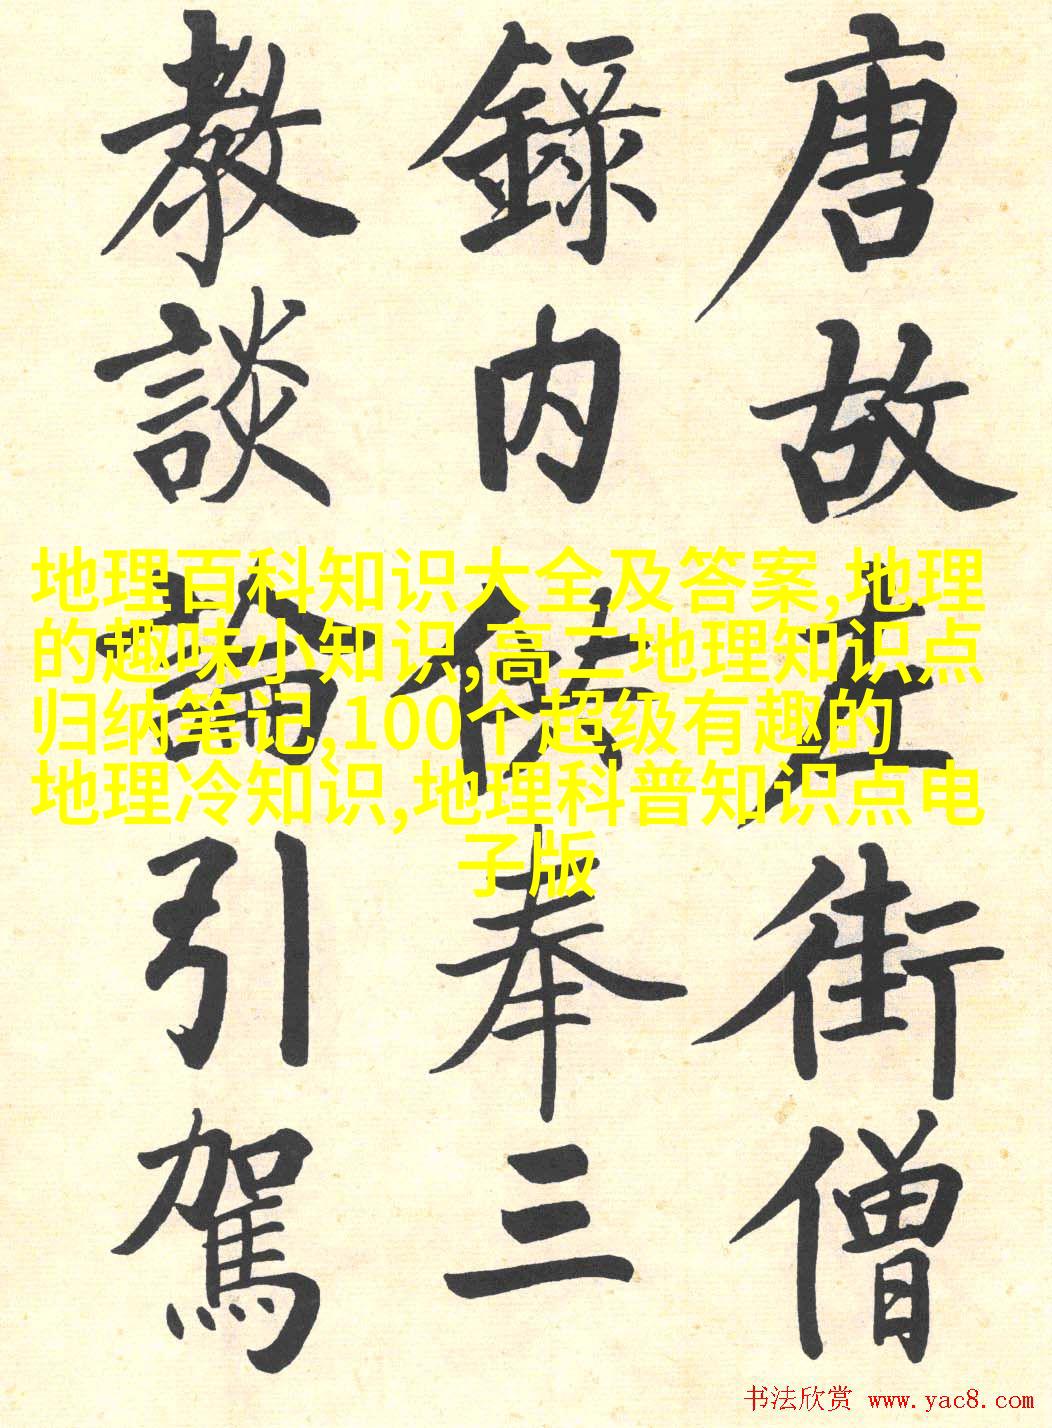 唐故左街僧
錄内供奉三
教談論引駕
地理百科知识大全及答案,地理
的趣味小知识,高二地理知识点
归纳笔记,100个超级有趣的
地理冷知识,地理科普知识点电
子版
书法欣赏 www.yac8.com